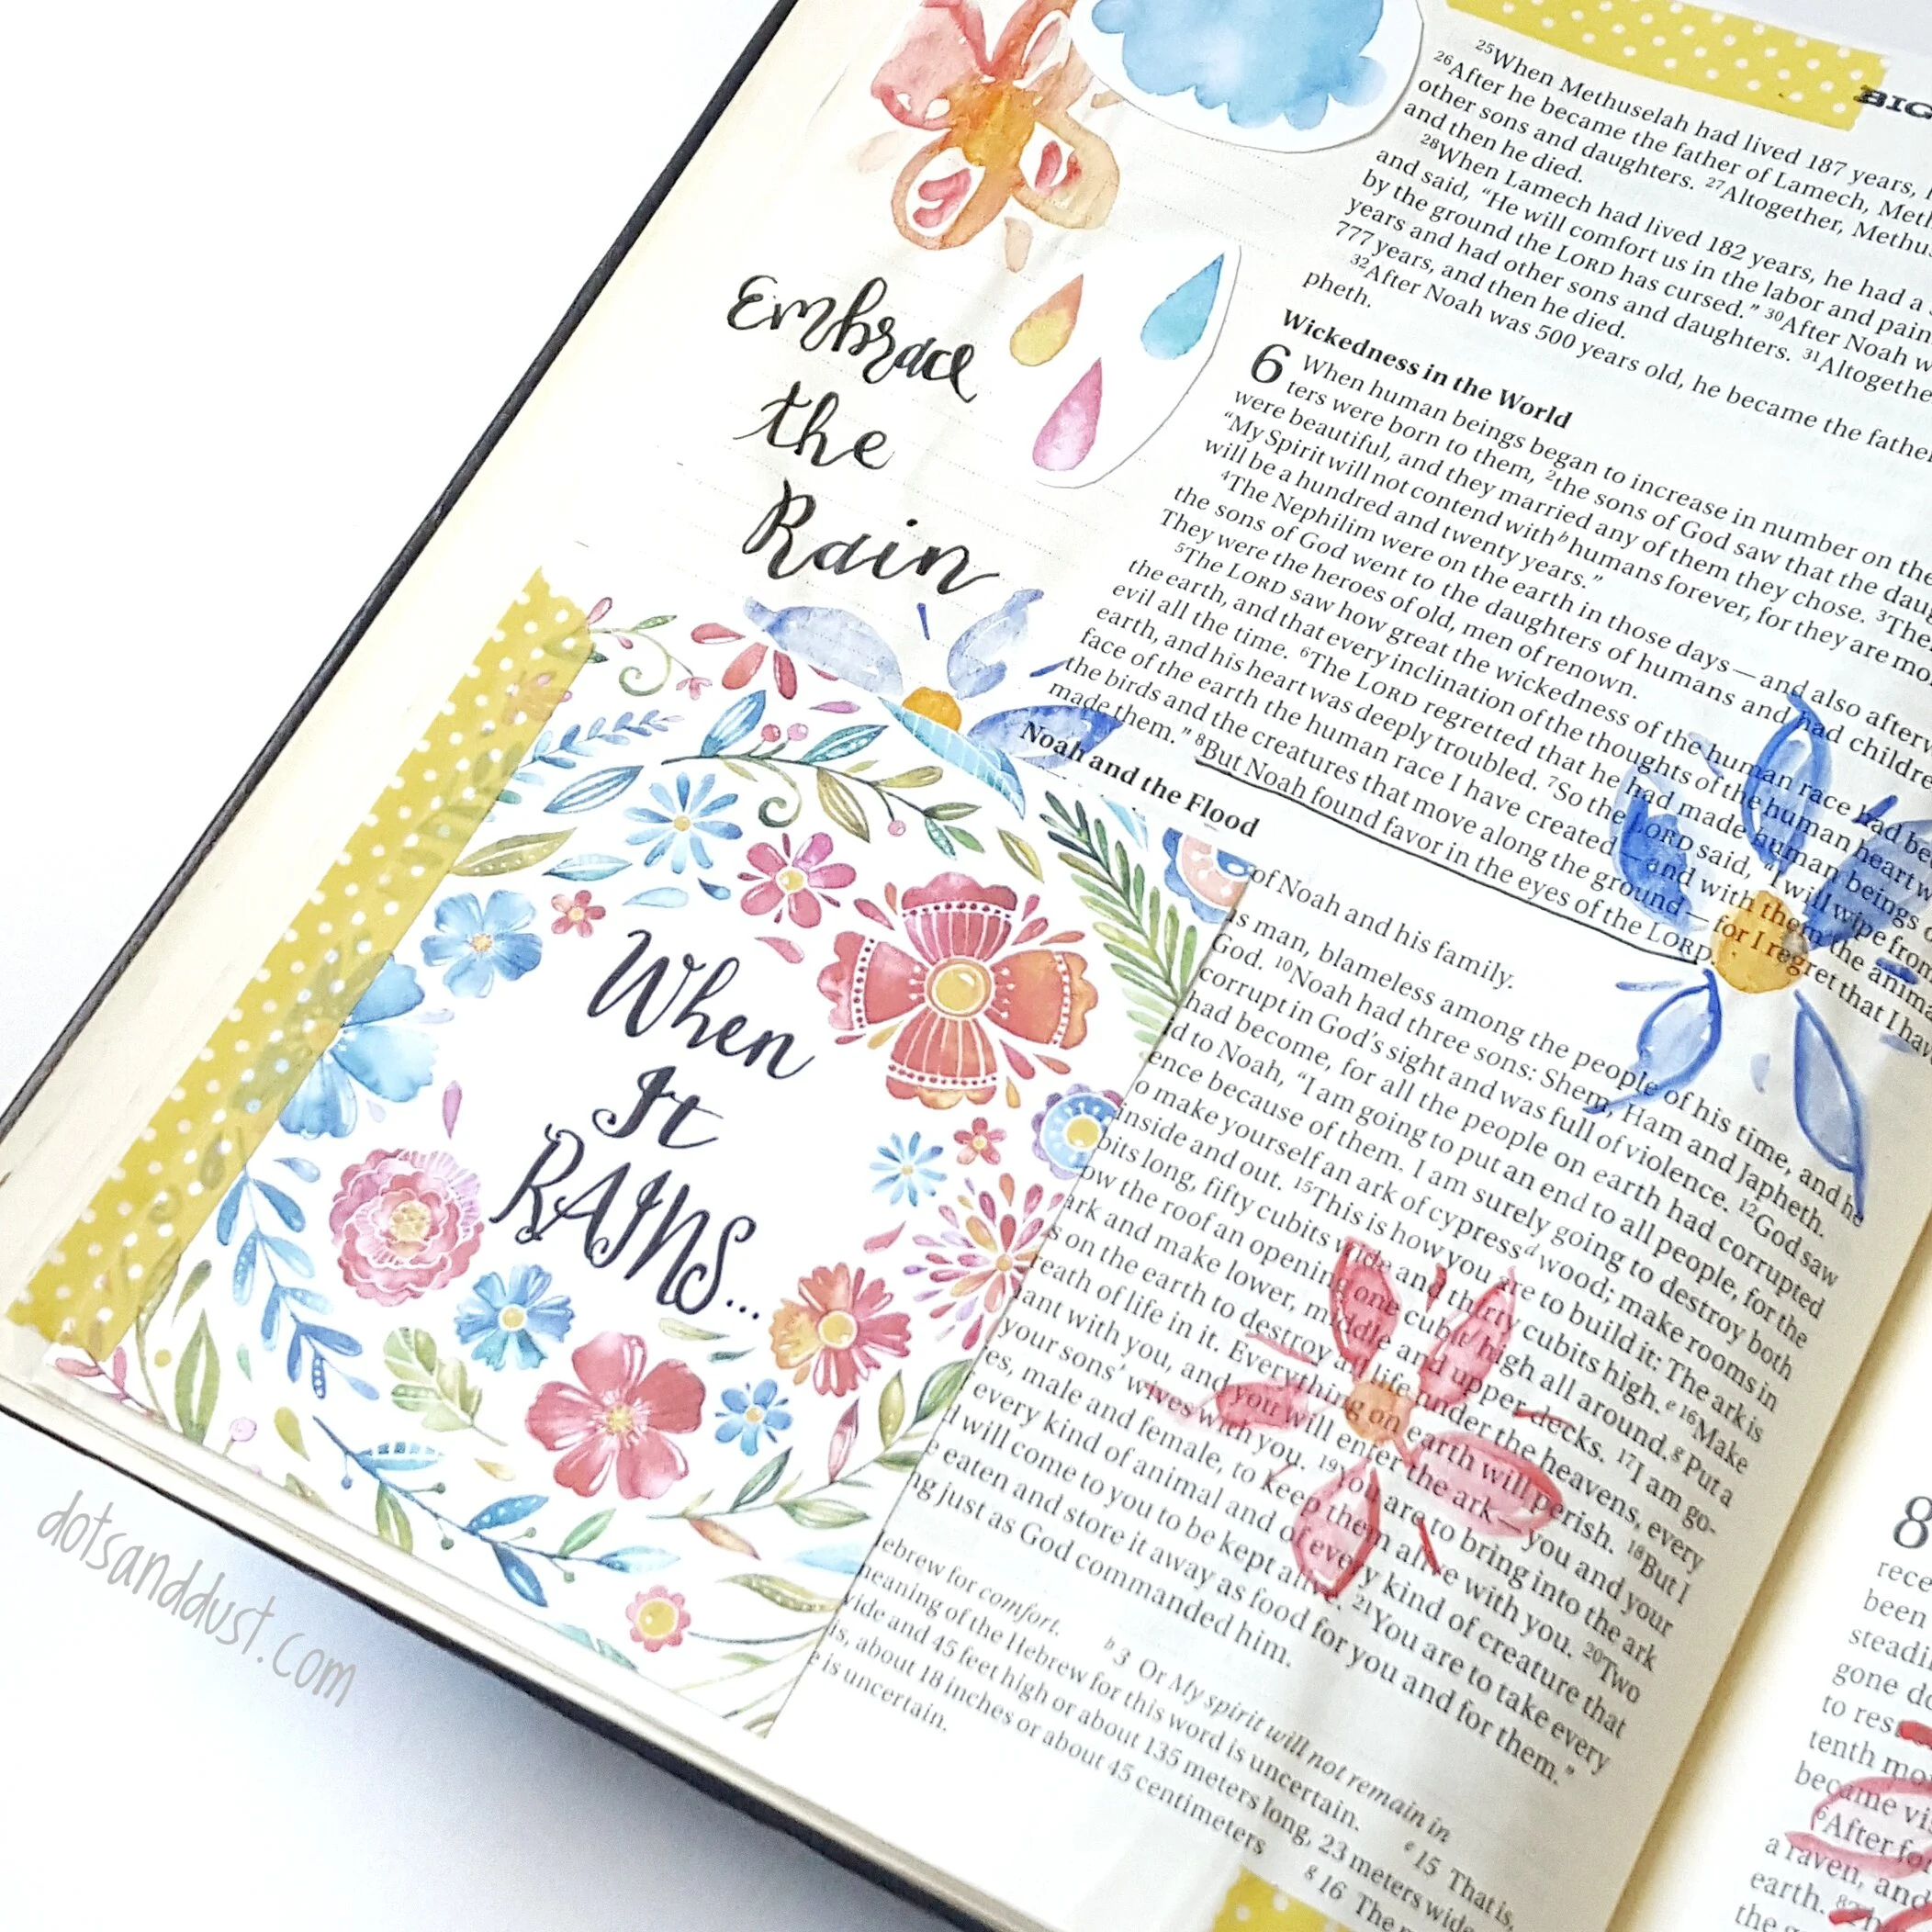 BIG
25When Methuselah had lived 187 years,
26After he became the father of Lamech, Meth
other sons and daughters. 27Altogether, Methu
and then he died.
28When Lamech had lived 182 years, he had a
and said, "He will comfort us in the labor and pain
by the ground the LORD has cursed." 30After Noah w
years and had other sons and daughters. 31Altogethe
777 years, and then he died.
32After Noah was 500 years old, he became the father
pheth.
Wickedness in the World
6 When human beings began to increase in number on the
ters were born to them, 2the sons of God saw that the dau
were beautiful, and they married any of them they chose. 3The
"My Spirit will not contend with b humans forever, for they are mor
will be a hundred and twenty years."
4The Nephilim were on the earth in those days—and also afterw
the sons of God went to the daughters of humans and had childre
They were the heroes of old, men of renown.
5The LORD saw how great the wickedness of the human race had be
the earth, and that every inclination of the thoughts of the human heart w
evil all the time. 6The LORD regretted that he had made human beings o
earth, and his heart was deeply troubled. 7So the LORD said, "I will wipe from
face of the earth the human race I have created—and with them the anima
the birds and the creatures that move along the ground—for I regret that I have
made them." 8But Noah found favor in the eyes of the LORD.
Noah and the Flood
of Noah and his family.
is man, blameless among the people of his time, and he
God. 10Noah had three sons: Shem, Ham and Japheth.
corrupt in God's sight and was full of violence. 12God saw
had become, for all the people on earth had corrupted
d to Noah, "I am going to put an end to all people, for the
ence because of them. I am surely going to destroy both
o make yourself an ark of cypress d wood; make rooms in
inside and out. 15This is how you are to build it: The ark is
bits long, fifty cubits wide and thirty cubits high. e 16Make
ow the roof an opening one cubit high all around. g Put a
ark and make lower, middle and upper decks. 17I am go-
s on the earth to destroy all life under the heavens, every
reath of life in it. Everything on earth will perish. 18But I
ant with you, and you will enter the ark—you and your
your sons' wives with you. 19You are to bring into the ark
es, male and female, to keep them alive with you. 20Two
every kind of animal and of every kind of creature that
d will come to you to be kept alive. 21You are to take every
e eaten and store it away as food for you and for them."
ng just as God commanded him.
ebrew for comfort. b 3 Or My spirit will not remain in
meaning of the Hebrew for this word is uncertain. e 15 That is,
vide and 45 feet high or about 135 meters long, 23 meters wide
is, about 18 inches or about 45 centimeters g 16 The
e is uncertain.
Embrace
the
Rain
When
It
RAINS...
dotsanddust.com
8
rece
been
steadi
gone do
to res
tenth mo
became vis
6After for
a raven, and
earth. 8
the